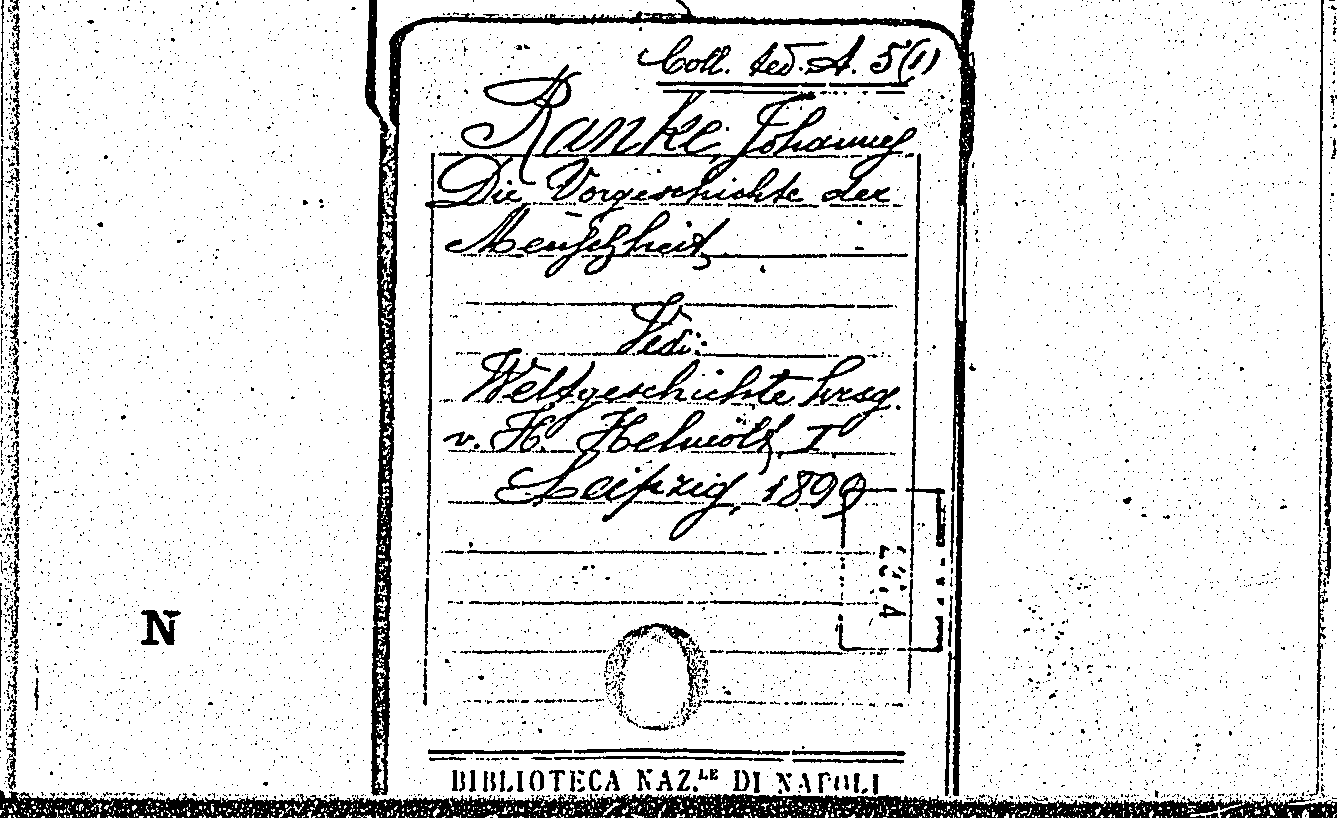 Coll. ted. A. 5(1)
Ranke, Johannes
Die Vorgeschichte der
Menschheit
Vedi:
Weltgeschichte hrsg.
v. H. Helmolt, I.
Leipzig, 1899
N
BIBLIOTECA NAZ.LE DI NAPOLI